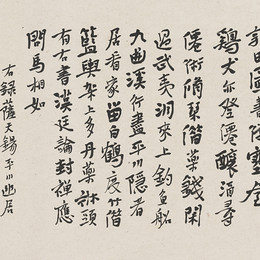 鷄犬亦登僊釀酒尋
僊術琴藥錢閑
過武夷洞來上釣魚船
九曲溪行盡平川隱者
居看家留白鶴度竹借
籃輿架上多丹藥牀頭
有古書漢廷論封禪應
問馬相如
右錄薩天錫平川幽居